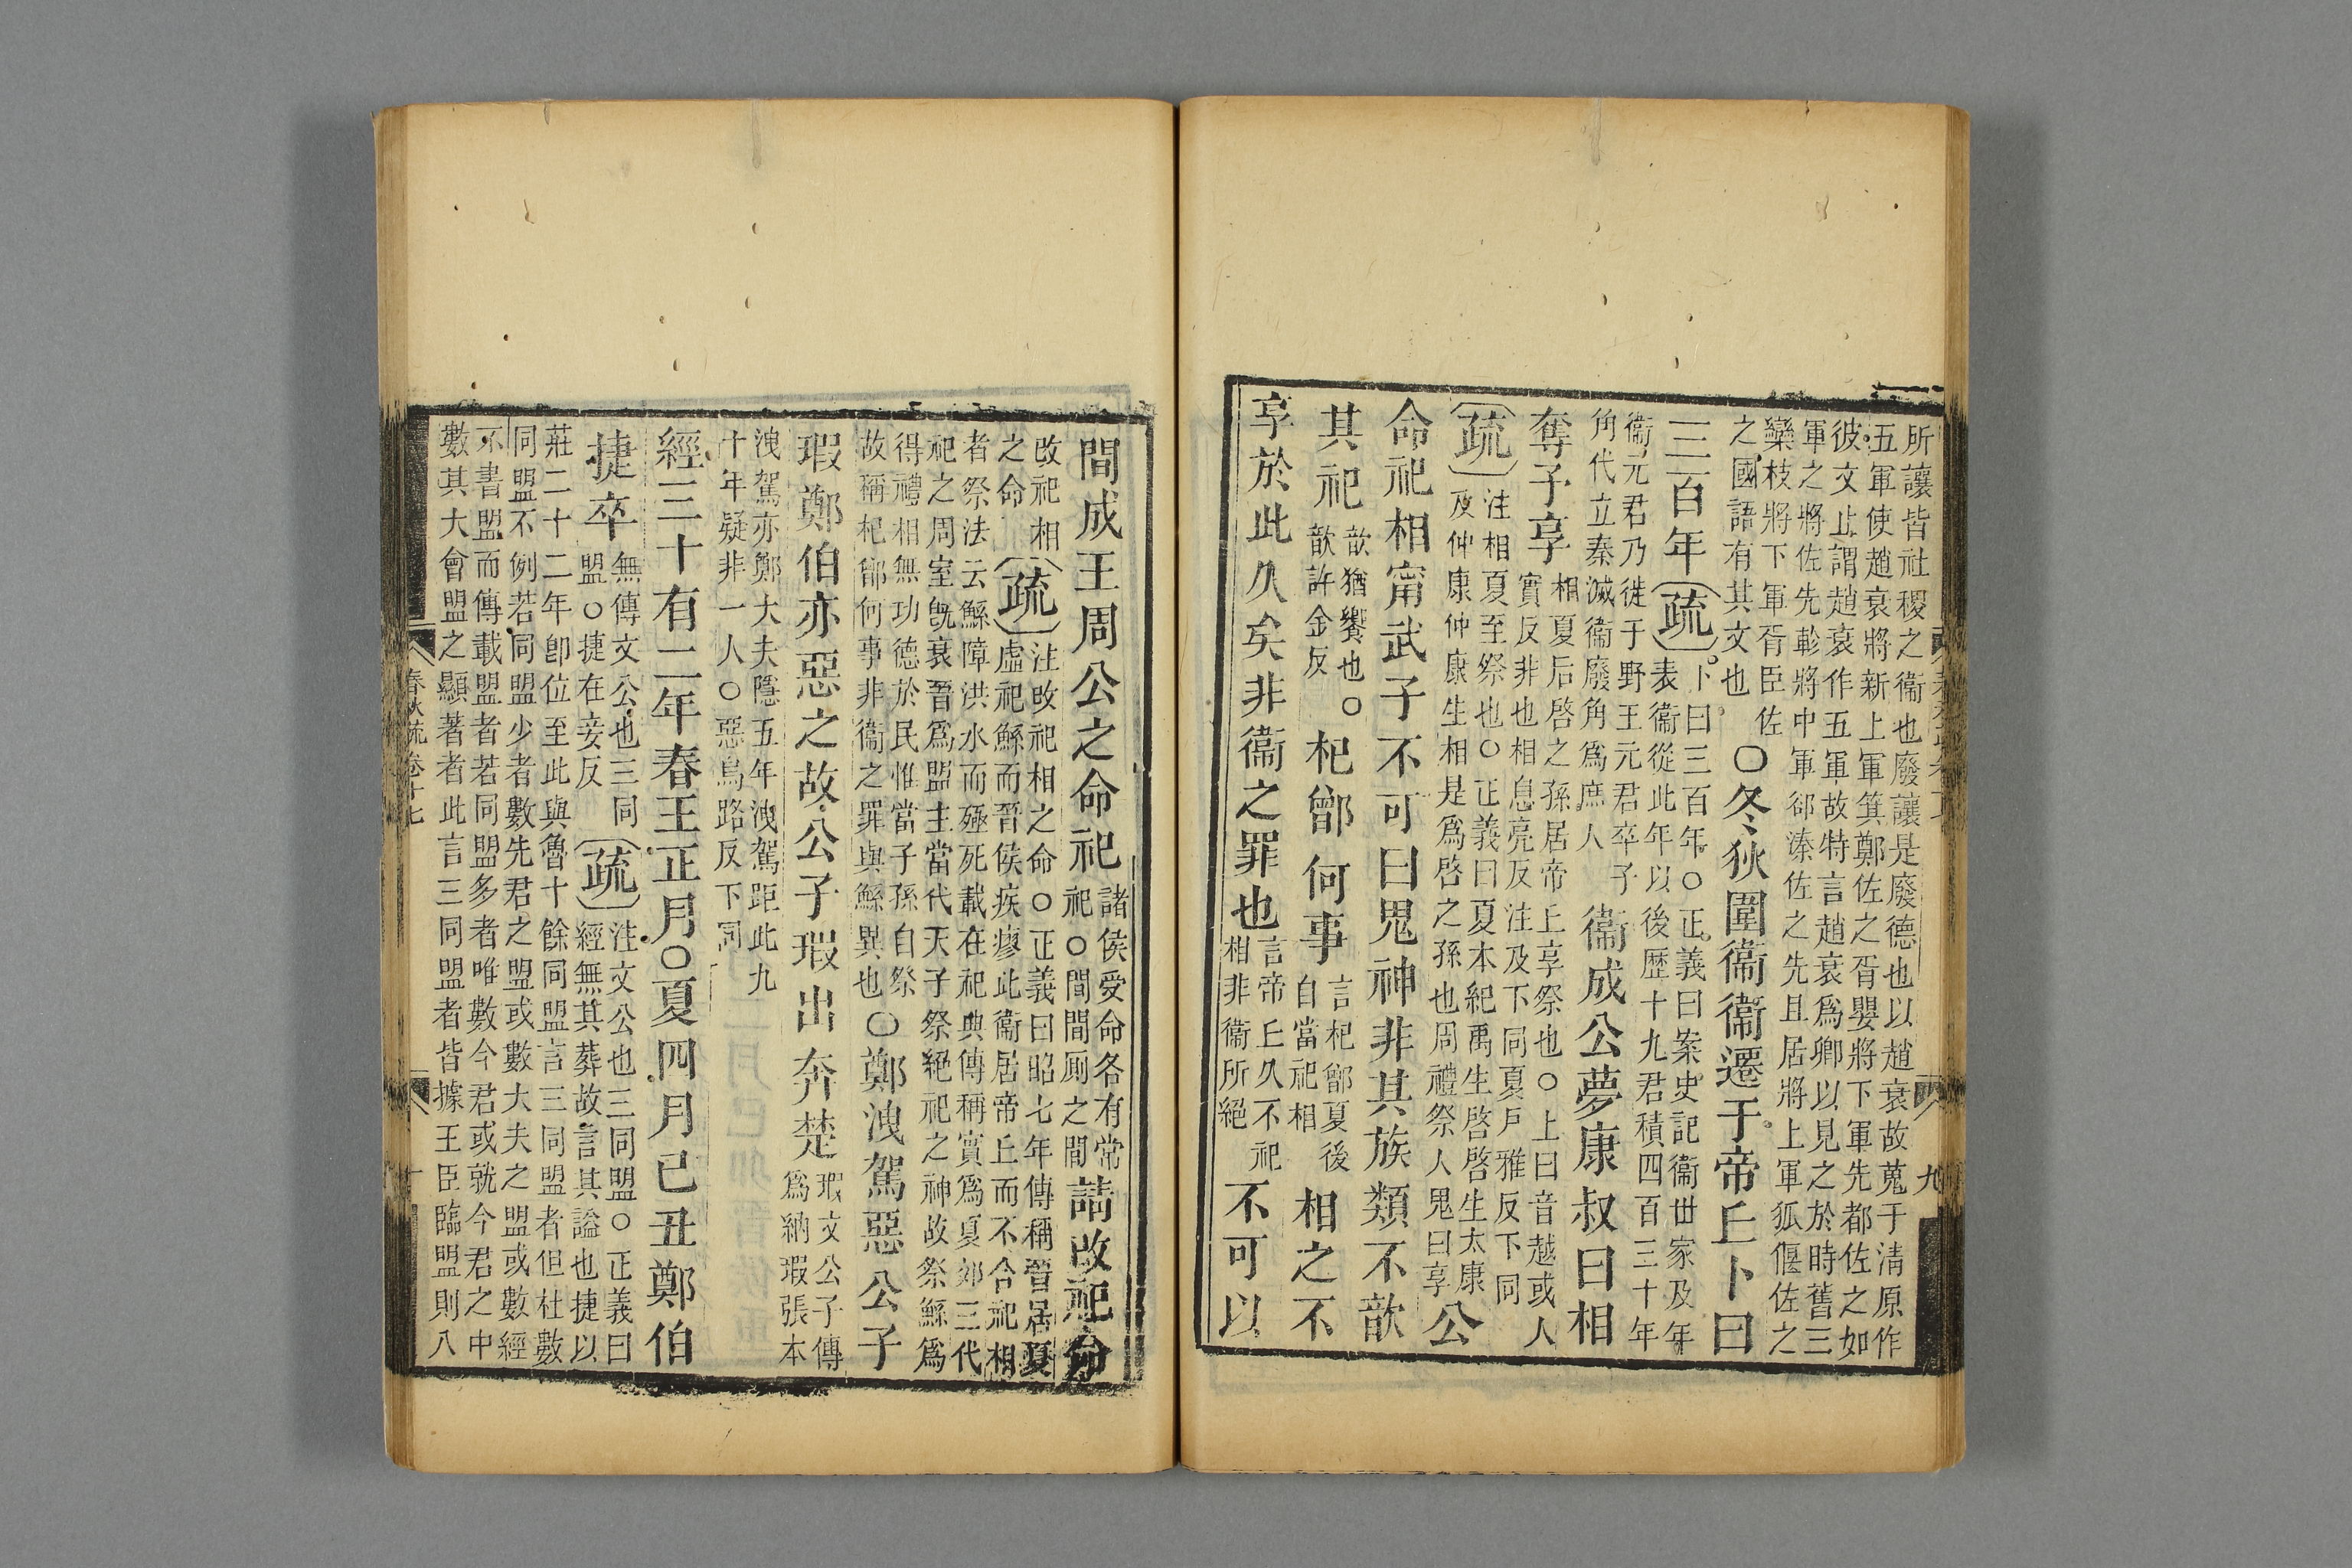 所讓皆社稷之衞也廢讓是廢德也以趙衰故蒐于清原作
五軍使趙衰將新上軍箕鄭佐之胥嬰將下軍先都佐之如
彼文止謂趙衰作五軍故特言趙衰爲卿以見之於時舊三
軍之將佐先軫將中軍郤溱佐之先且居將上軍狐偃佐之
欒枝將下軍胥臣佐
之國語有其文也
○冬狄圍衞衞遷于帝丘卜曰
三百年
(疏)
卜曰三百年○正義曰案史記衞世家及年
表衞從此年以後歷十九君積四百三十年
衞元君乃徙于野王元君卒子
角代立秦滅衞廢角爲庶人
衞成公夢康叔曰相
奪予享
相夏后啓之孫居帝丘享祭也○上曰音越或人
實反非也相息亮反注及下同夏戶雅反下同
(疏)
注相夏至祭也○正義曰夏本紀禹生啓啓生太康
及仲康仲康生相是爲啓之孫也周禮祭人鬼曰享
公
命祀相甯武子不可曰鬼神非其族類不歆
其祀
歆猶饗也○
歆許金反
杞鄫何事
言杞鄫夏後
自當祀相
相之不
享於此久矣非衞之罪也
言帝丘久不祀
相非衞所絕
不可以
九
間成王周公之命祀
諸侯受命各有常
祀○間間厠之間
請改祀命
改祀相
之命
(疏)
注改祀相之命○正義曰昭七年傳稱晉居夏
虛祀鯀而晉侯疾瘳此衞居帝丘而不合祀相
者祭法云鯀障洪水而殛死載在祀典傳稱實爲夏郊三代
祀之周室旣衰晉爲盟主當代天子祭絕祀之神故祭鯀爲
得禮相無功德於民惟當子孫自祭
故稱杞鄫何事非衞之罪與鯀異也
○鄭洩駕惡公子
瑕鄭伯亦惡之故公子瑕出奔楚
瑕文公子傳
爲納瑕張本
洩駕亦鄭大夫隱五年洩駕距此九
十年疑非一人○惡烏路反下同
經三十有二年春王正月○夏四月己丑鄭伯
捷卒
無傳文公也三同
盟○捷在妾反
(疏)
注文公也三同盟○正義曰
經無其葬故言其謚也捷以
莊二十二年卽位至此與魯十餘同盟言三同盟者但杜數
同盟不例若同盟少者數先君之盟或數大夫之盟或數經
不書盟而傳載盟者若同盟多者唯數今君或就今君之中
數其大會盟之顯著者此言三同盟者皆據王臣臨盟則八
春秋疏卷十七
十